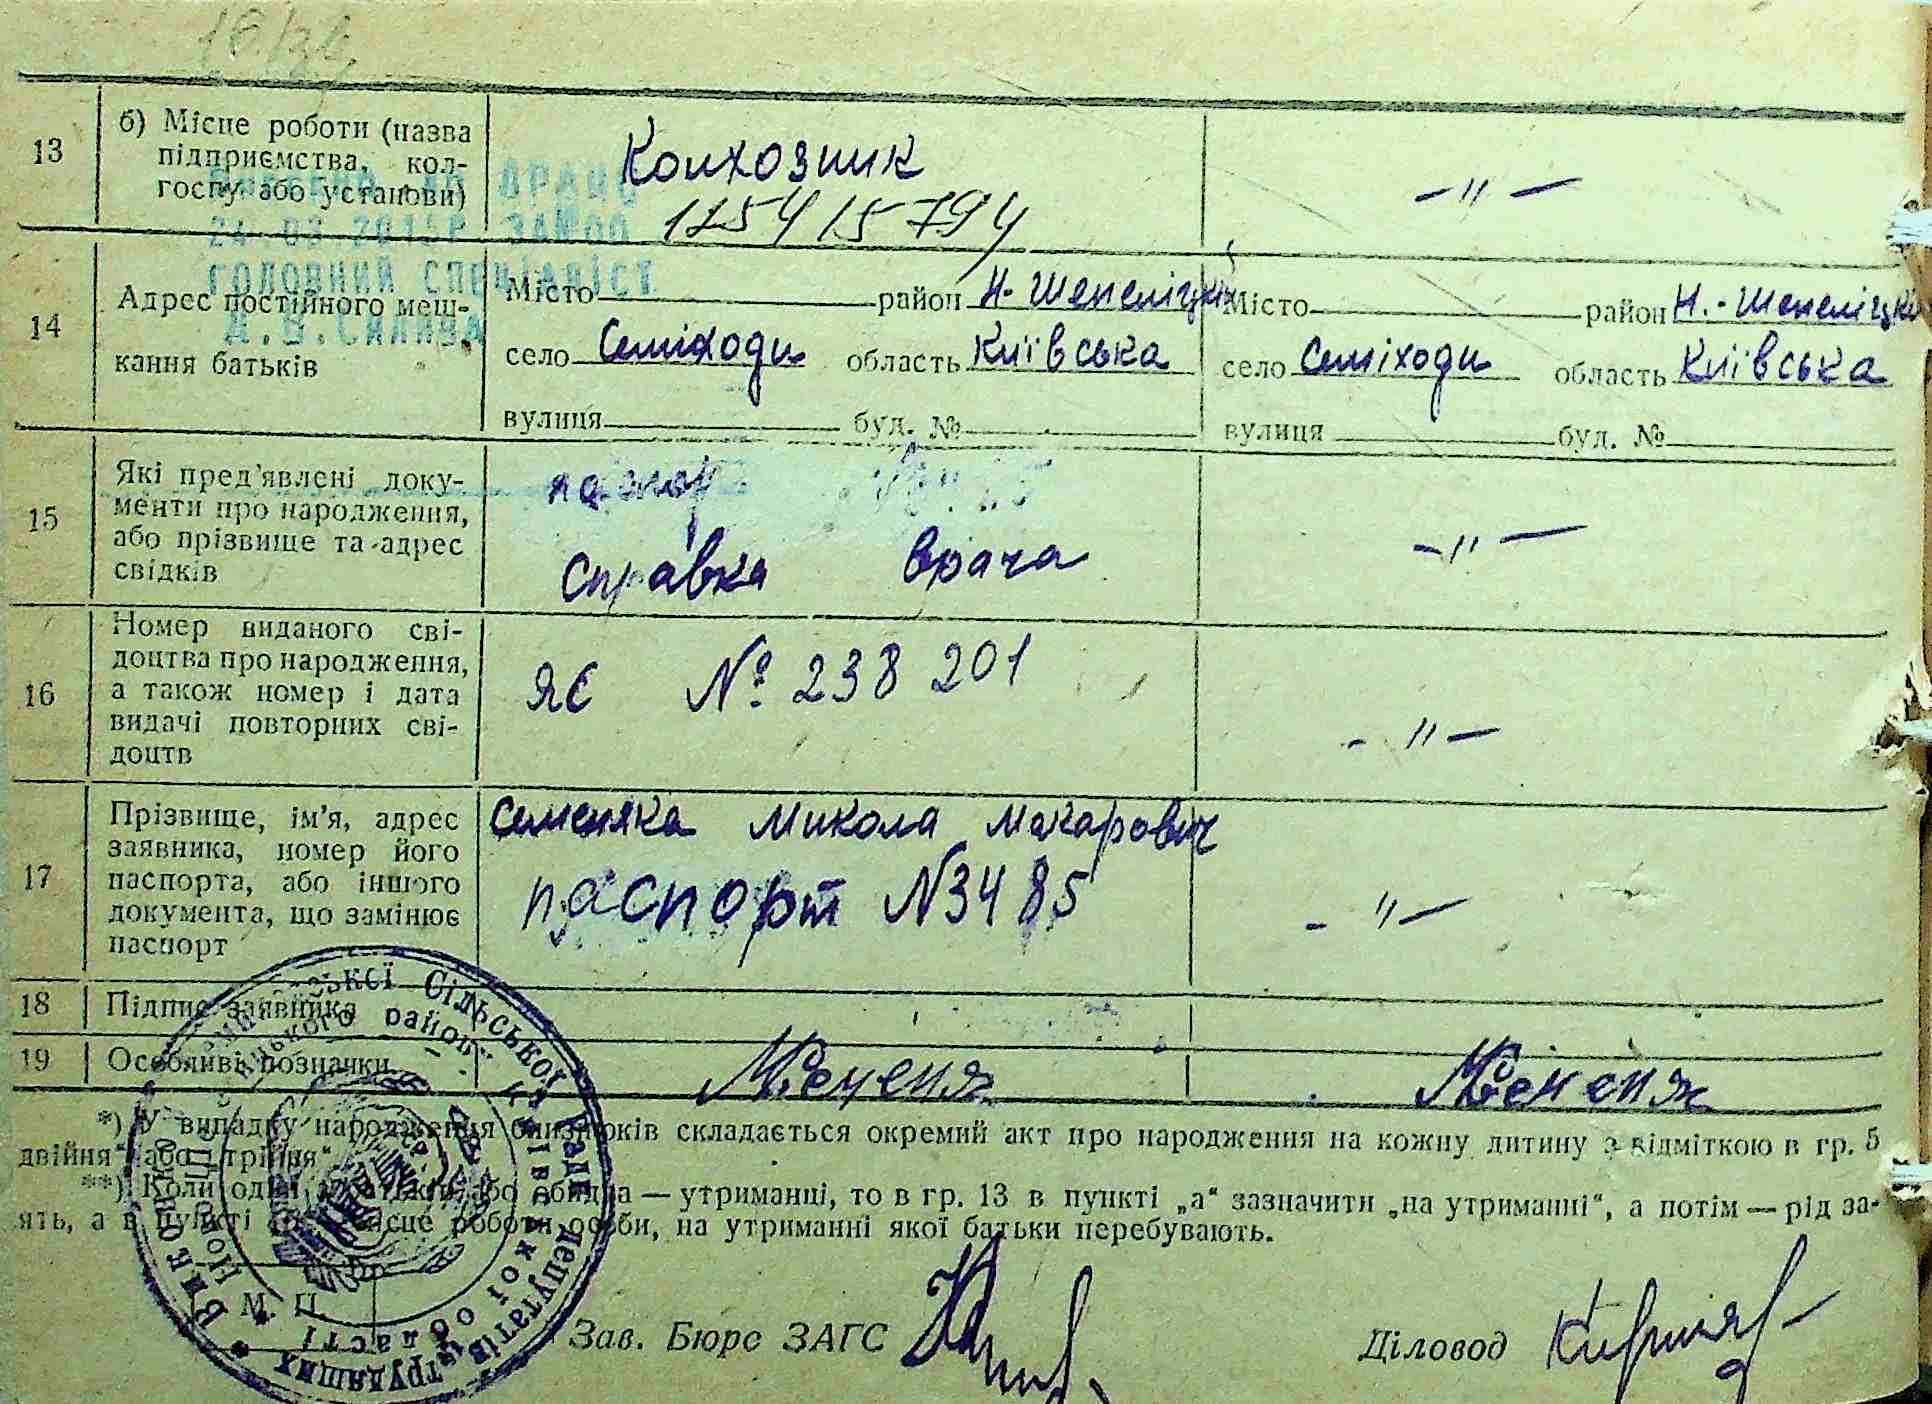 16/34
13 б) Місце роботи (назва підприємства, кол-
госпу або установи)
Колхозник
1254 15 794
— " —
14 Адрес постійного меш-
кання батьків
Місто район Н-Шепеліцкій
село Семіходи область Київська
вулиця буд. №
Місто район Н.-Шепеліцкі
село Семіходи область Київська
вулиця буд. №
ГОЛОВНИЙ СПЕЦІАЛІСТ
15 Які пред'явлені доку-
менти про народження,
або прізвище та адрес
свідків
паспор
справка врача
— " —
16 Номер виданого сві-
доцтва про народження,
а також номер і дата
видачі повторних сві-
доцтв
ЯЄ № 238 201
— " —
17 Прізвище, ім'я, адрес
заявника, номер його
паспорта, або іншого
документа, що замінює
паспорт
Семеняка Микола Макарович
паспорт N3485
— " —
18 Підпис заявника
19 Особливі позначки
*) У випадку народження близнюків складається окремий акт про народження на кожну дитину з відміткою в гр. 5
двійня" або "трійня"
**) Коли один з батьків або обидва — утриманці, то в гр. 13 в пункті „а" зазначити „на утриманні", а потім — рід за-
ять, а в пункті місце роботи особи, на утриманні якої батьки перебувають.
М. П.
Зав. Бюро ЗАГС
Діловод
Сільської Ради депутатів трудящих
району Київської області